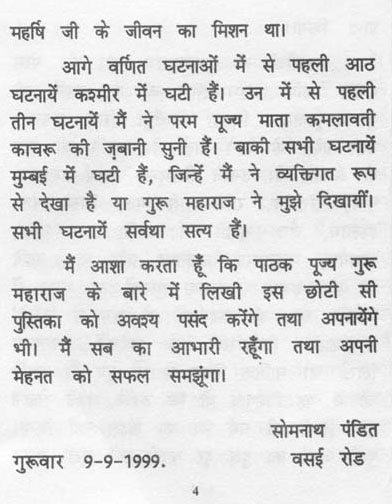 महर्षि जी के जीवन का मिशन था।
आगे वर्णित घटनाओं में से पहली आठ
घटनायें कश्मीर में घटी हैं। उन में से पहली
तीन घटनायें मैं ने परम पूज्य माता कमलावती
काचरू की ज़बानी सुनी हैं। बाकी सभी घटनायें
मुम्बई में घटी हैं, जिन्हें मैं ने व्यक्तिगत रूप
से देखा है या गुरू महाराज ने मुझे दिखायीं।
सभी घटनायें सर्वथा सत्य हैं।
मैं आशा करता हूँ कि पाठक पूज्य गुरू
महाराज के बारे में लिखी इस छोटी सी
पुस्तिका को अवश्य पसंद करेंगे तथा अपनायेंगे
भी। मैं सब का आभारी रहूँगा तथा अपनी
मेहनत को सफल समझूंगा।
सोमनाथ पंडित
गुरूवार 9-9-1999. वसई रोड
4